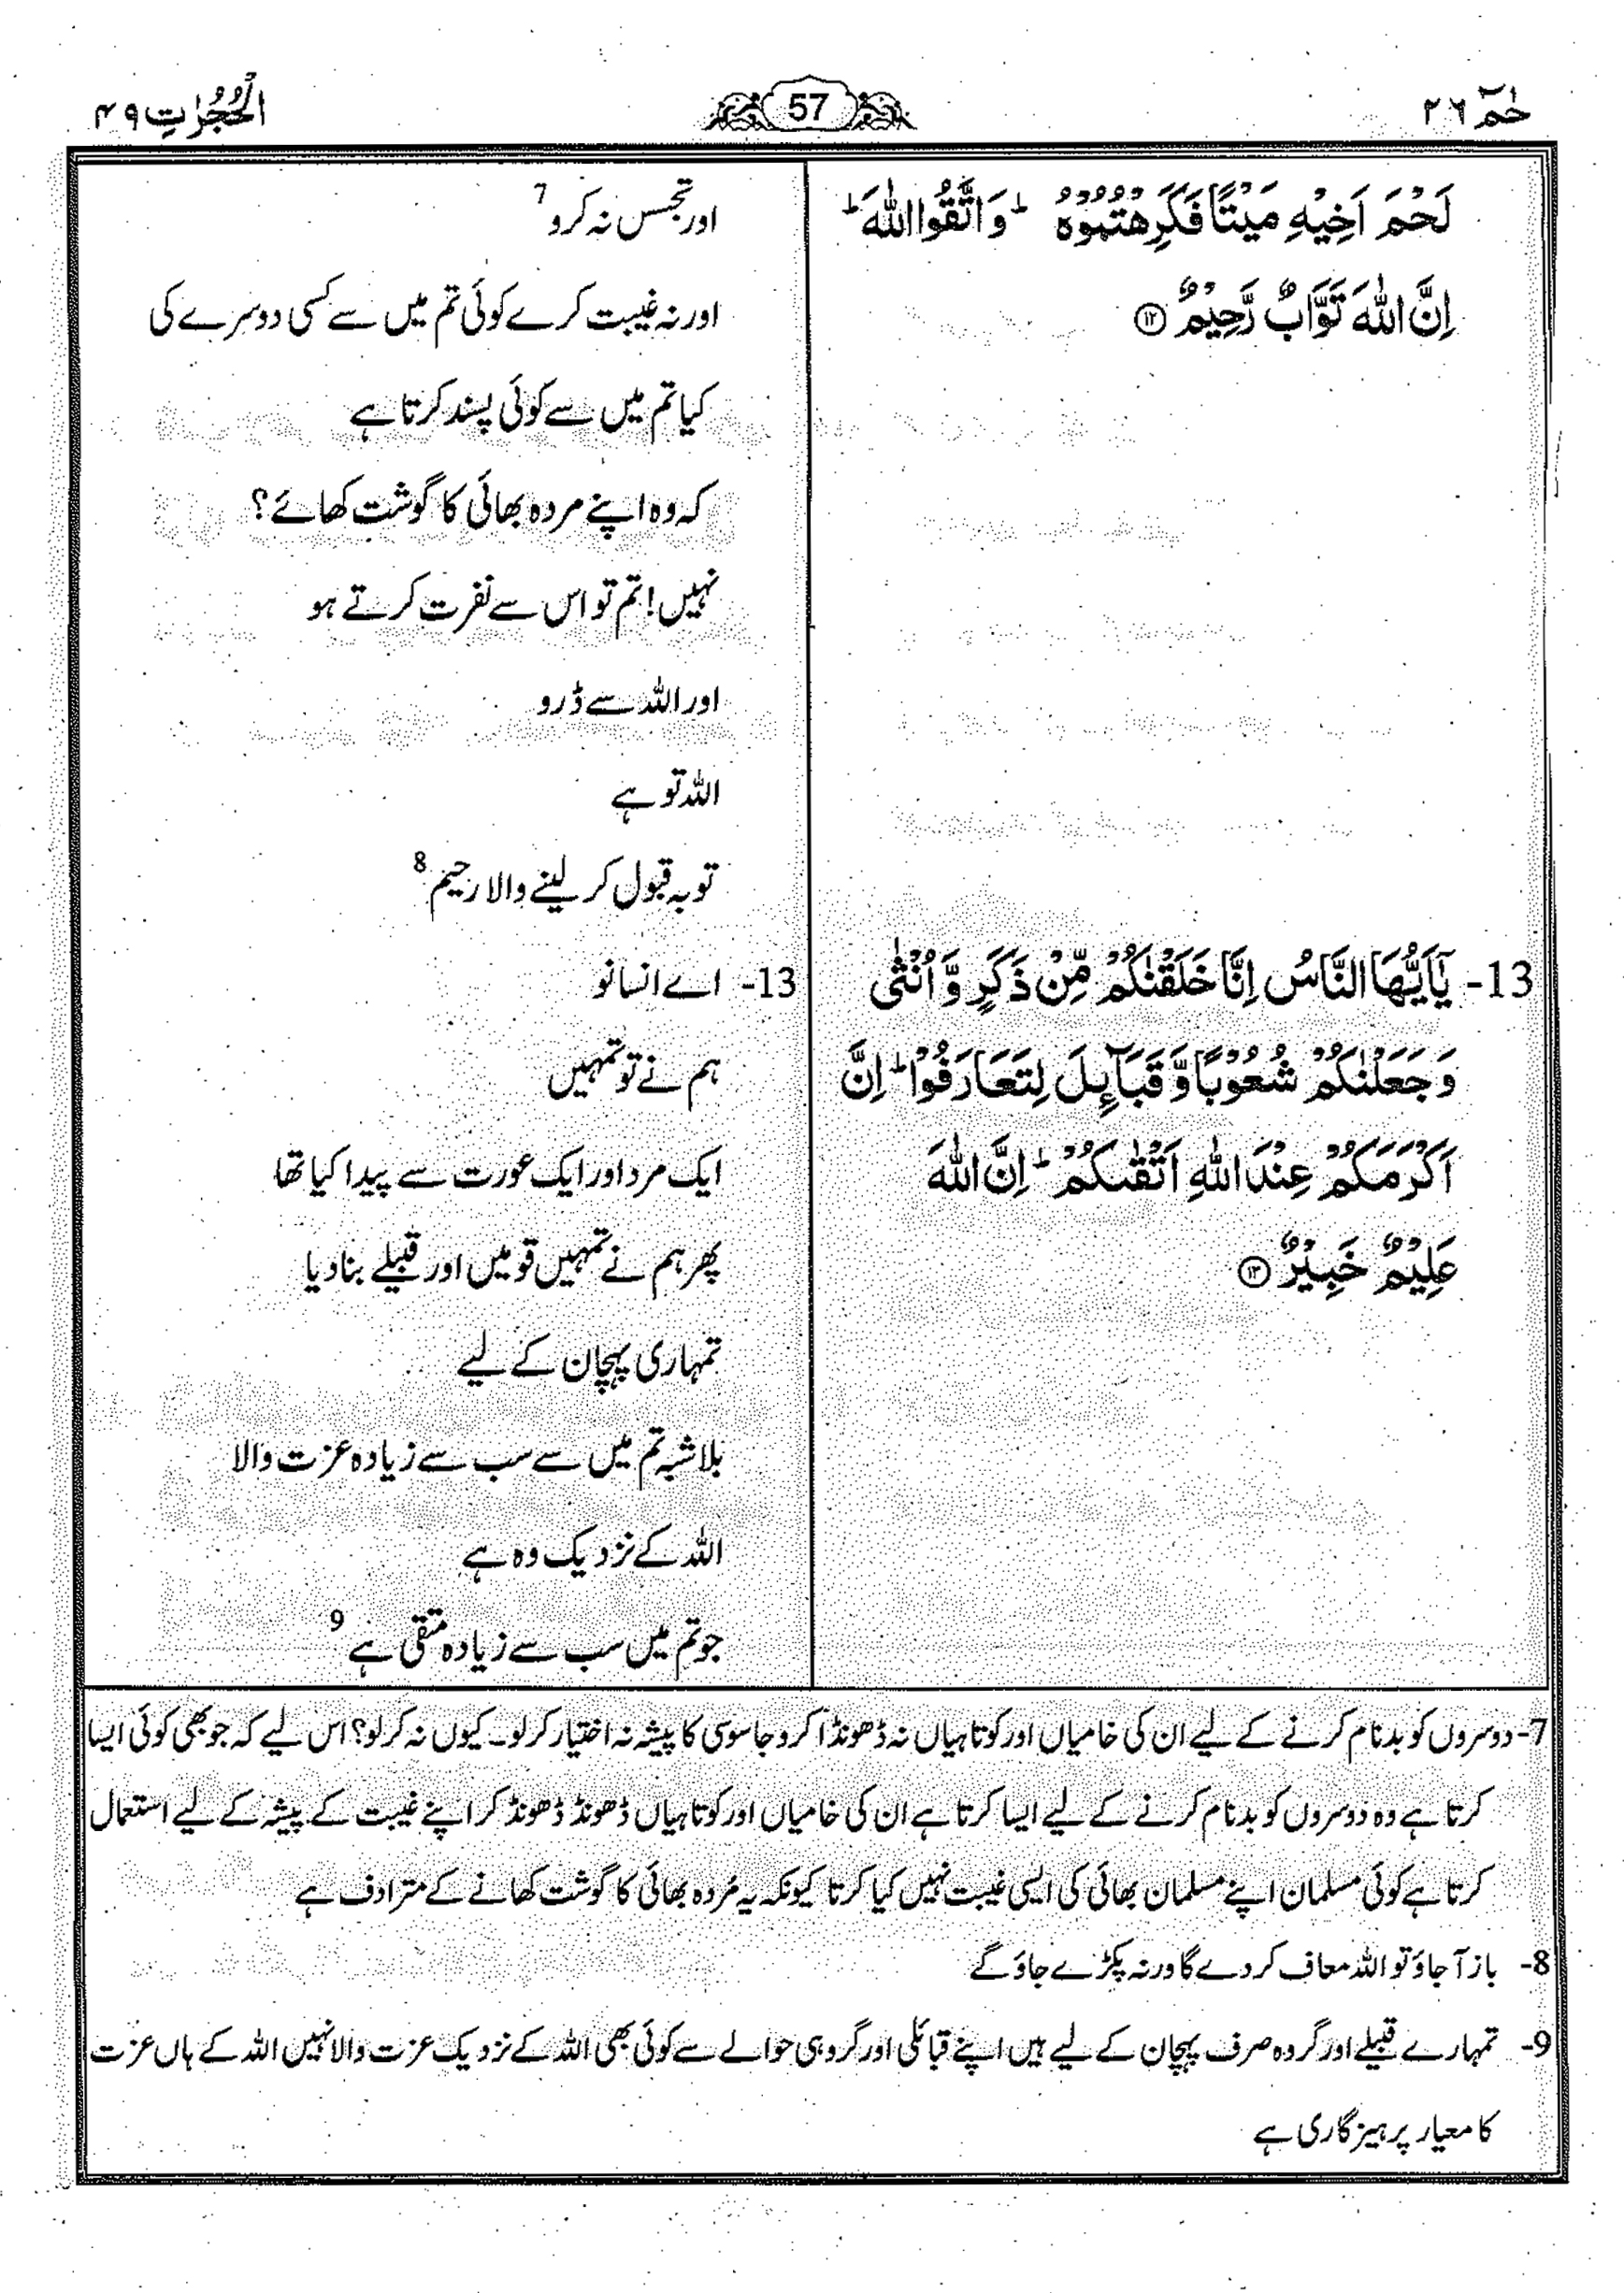 حٰمٓ ٢٦
57
الْحُجُرٰتِ ٤٩
لَحْمَ اَخِيْهِ مَيْتًا فَكَرِهْتُمُوْهُ ؕ وَ اتَّقُوا اللّٰهَ ؕ
اِنَّ اللّٰهَ تَوَّابٌ رَّحِيْمٌ ﴿١٢﴾
13- يٰۤاَيُّهَا النَّاسُ اِنَّا خَلَقْنٰكُمْ مِّنْ ذَكَرٍ وَّ اُنْثٰى
وَ جَعَلْنٰكُمْ شُعُوْبًا وَّ قَبَآىِٕلَ لِتَعَارَفُوْا ؕ اِنَّ
اَكْرَمَكُمْ عِنْدَ اللّٰهِ اَتْقٰىكُمْ ؕ اِنَّ اللّٰهَ
عَلِيْمٌ خَبِيْرٌ ﴿١٣﴾
اور تجسس نہ کرو 7
اور نہ غیبت کرے کوئی تم میں سے کسی دوسرے کی
کیا تم میں سے کوئی پسند کرتا ہے
کہ وہ اپنے مردہ بھائی کا گوشت کھائے؟
نہیں! تم تو اس سے نفرت کرتے ہو
اور اللہ سے ڈرو
اللہ تو ہے
توبہ قبول کر لینے والا رحیم 8
13- اے انسانو
ہم نے تو تمہیں
ایک مرد اور ایک عورت سے پیدا کیا تھا
پھر ہم نے تمہیں قومیں اور قبیلے بنا دیا
تمہاری پہچان کے لیے
بلاشبہ تم میں سے سب سے زیادہ عزت والا
اللہ کے نزدیک وہ ہے
جو تم میں سب سے زیادہ متقی ہے 9
7- دوسروں کو بدنام کرنے کے لیے ان کی خامیاں اور کوتاہیاں نہ ڈھونڈا کرو جاسوسی کا پیشہ نہ اختیار کر لو۔ کیوں نہ کر لو؟ اس لیے کہ جو بھی کوئی ایسا
کرتا ہے وہ دوسروں کو بدنام کرنے کے لیے ایسا کرتا ہے ان کی خامیاں اور کوتاہیاں ڈھونڈ ڈھونڈ کر اپنے غیبت کے پیشہ کے لیے استعمال
کرتا ہے کوئی مسلمان اپنے مسلمان بھائی کی ایسی غیبت نہیں کیا کرتا کیونکہ یہ مُردہ بھائی کا گوشت کھانے کے مترادف ہے
8- باز آ جاؤ تو اللہ معاف کر دے گا ورنہ پکڑے جاؤ گے
9- تمہارے قبیلے اور گروہ صرف پہچان کے لیے ہیں اپنے قبائلی اور گروہی حوالے سے کوئی بھی اللہ کے نزدیک عزت والا نہیں اللہ کے ہاں عزت
کا معیار پرہیزگاری ہے